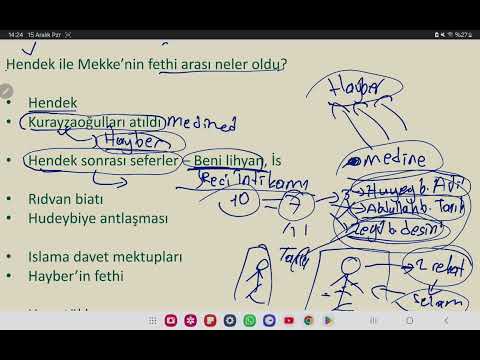 14:24 15 Aralık Pzr
%27
Hendek ile Mekke'nin fethi arası neler oldu?
Hayber
• Hendek
• Kurayzaoğulları atıldı medined
Hayber
medine
• Hendek sonrası seferler – Beni lihyan, İs
Reci İntikamı
10 = 7
3
Huyeyb b. Adi
Abdullah b. Tarık
• Rıdvan biatı
• Hudeybiye antlaşması
2 rekat
selam
• Islama davet mektupları
• Hayber'in fethi